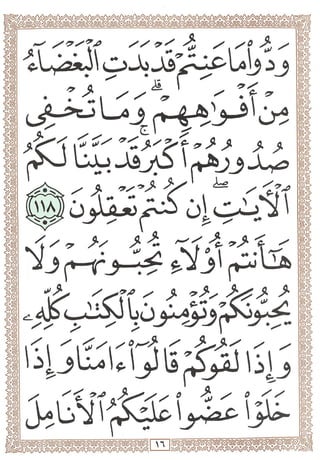 وَدُّوا۟ مَا عَنِتُّمْ قَدْ بَدَتِ ٱلْبَغْضَآءُ
مِنْ أَفْوَٰهِهِمْ ۖ وَمَا تُخْفِى
صُدُورُهُمْ أَكْبَرُ ۚ قَدْ بَيَّنَّا لَكُمُ
ٱلْأَيَـٰتِ ۖ إِن كُنتُمْ تَعْقِلُونَ ١١٨
هَـٰٓأَنتُمْ أُو۟لَآءِ تُحِبُّونَهُمْ وَلَا
يُحِبُّونَكُمْ وَتُؤْمِنُونَ بِٱلْكِتَـٰبِ كُلِّهِۦ
وَإِذَا لَقُوكُمْ قَالُوٓا۟ ءَامَنَّا وَإِذَا
خَلَوْا۟ عَضُّوا۟ عَلَيْكُمُ ٱلْأَنَامِلَ
١٦